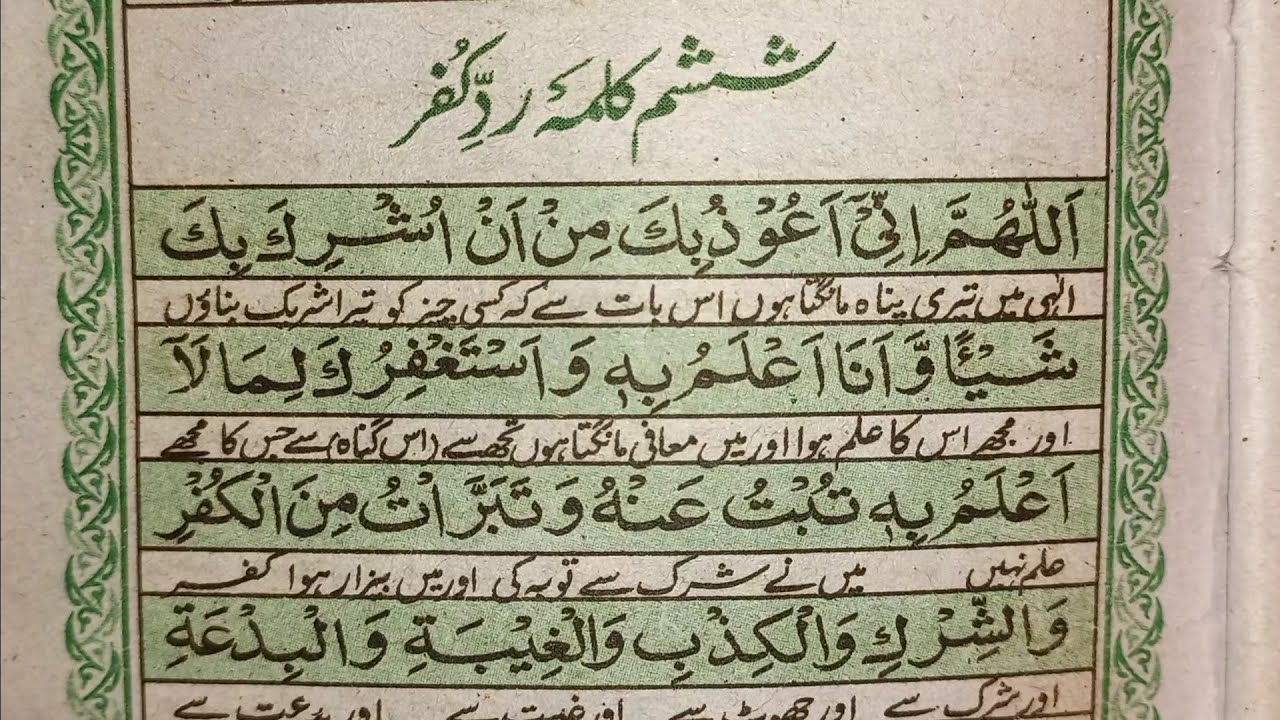 ششم کلمۂ ردِّ کُفر
اَللّٰهُمَّ اِنِّیْۤ اَعُوْذُ بِكَ مِنْ اَنْ اُشْرِكَ بِكَ
الٰہی میں تیری پناہ مانگتا ہوں اس بات سے کہ کسی چیز کو تیرا شریک بناؤں
شَیْئًا وَّ اَنَا اَعْلَمُ بِهٖ وَ اَسْتَغْفِرُكَ لِمَا لَاۤ
اور مجھے اس کا علم ہو اور میں معافی مانگتا ہوں تجھ سے (اس گناہ) سے جس کا مجھے
اَعْلَمُ بِهٖ تُبْتُ عَنْهُ وَ تَبَرَّاْتُ مِنَ الْكُفْرِ
علم نہیں میں نے شرک سے توبہ کی اور میں بیزار ہوا کفر
وَ الشِّرْكِ وَ الْكِذْبِ وَ الْغِیْبَةِ وَ الْبِدْعَةِ
اور شرک سے اور جھوٹ سے اور غیبت سے اور بدعت سے